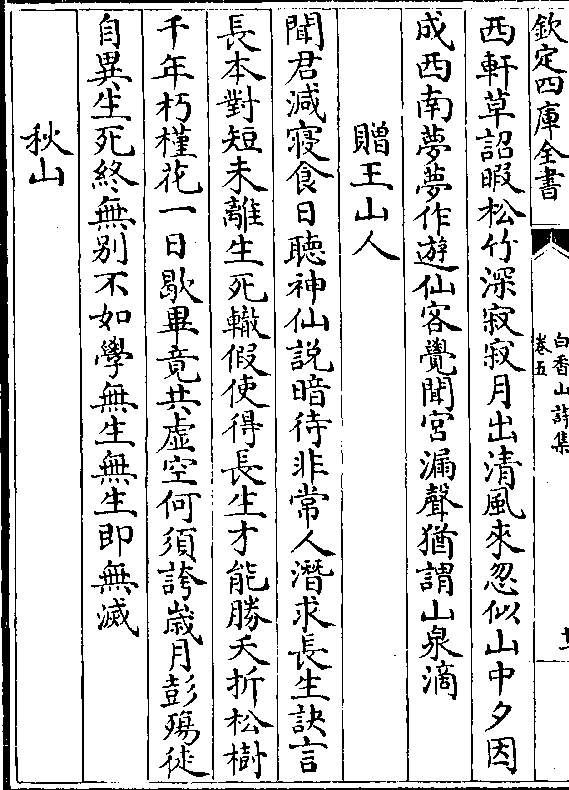 欽定四庫全書
白香山詩集
卷五
西軒草詔暇松竹深寂寂月出清風來忽似山中夕因
成西南夢夢作遊仙客覺聞宮漏聲猶謂山泉滴
贈王山人
聞君減寢食日聽神仙説暗待非常人潛求長生訣言
長本對短未離生死轍假使得長生才能勝夭折松樹
千年朽槿花一日歇畢竟共虚空何須誇歲月彭殤徒
自異生死終無别不如學無生無生即無滅
秋山